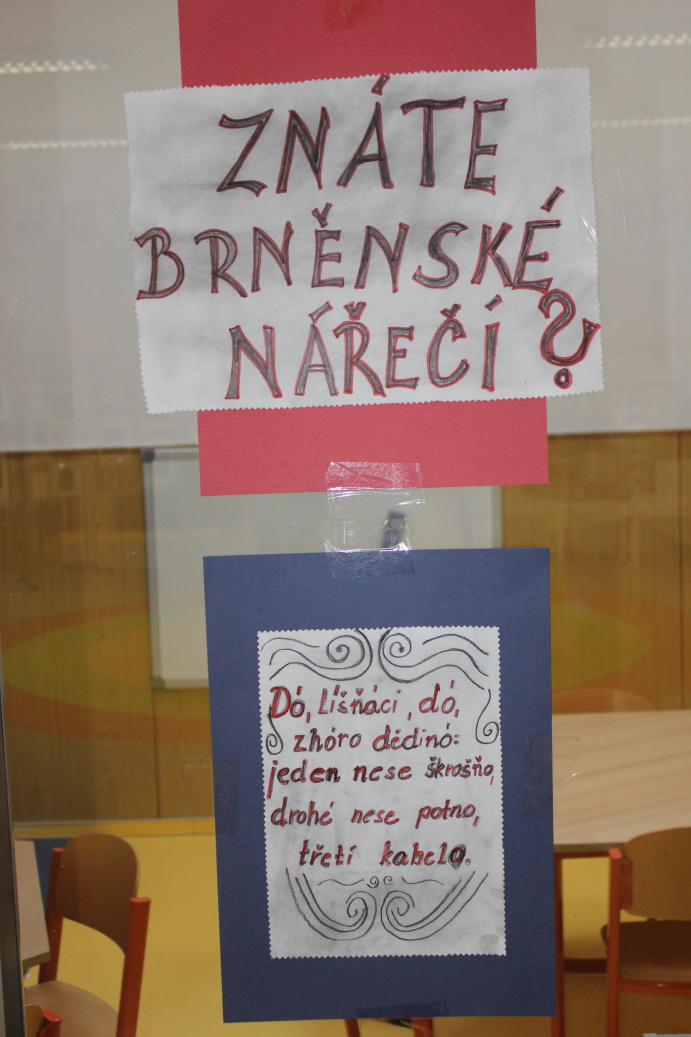 ZNÁTE
BRNĚNSKÉ
NÁŘEČÍ?
Dó, Líšňáci, dó,
zhóro dědinó:
jeden nese škrošňo,
drohé nese potno,
třetí kabelo.